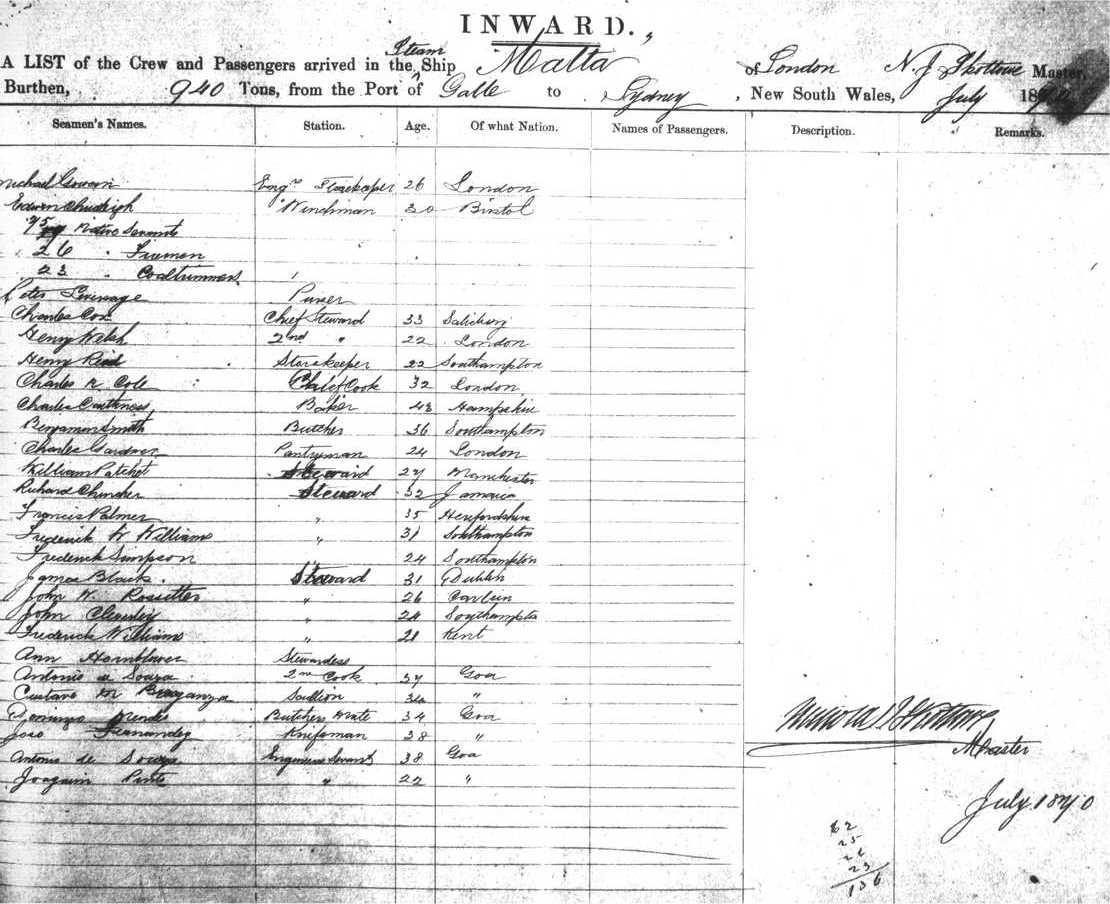 INWARD.,
A LIST of the Crew and Passengers arrived in the Steam Ship Malta of London N. J. Skottowe Master,
Burthen, 940 Tons, from the Port of Galle to Sydney, New South Wales, July 18
Seamen's Names. Station. Age. Of what Nation. Names of Passengers. Description. Remarks.
Michael Gowan Engrs Storekeeper 26 London
Edwin Chudleigh " Winchman 30 Bristol
25 Native Servants
26 " Firemen
23 " Coaltrimmers
Peter Purser
Charles Cox Chief Steward 33 Salisbury
Henry Welsh 2nd " 22 London
Henry Reid Storekeeper 22 Southampton
Charles R Cole Chief Cook 32 London
Charles Baker 43 Hampshire
Benjamin Smith Butcher 36 Southampton
Charles Gardner Pantryman 24 London
William Patchet Steward 27 Manchester
Richard Churcher Steward 32 Jamaica
Francis Palmer " 35 Herefordshire
Frederick W Williams " 31 Southampton
Frederick Simpson 24 Southampton
James Black Steward 31 Dublin
John W. Rossitter " 26
John " 24 Southampton
Frederick Williams " 21 Kent
Ann Hornblower Stewardess
Antonio de Souza 2nd Cook 37 Goa
Custavo M Braganza Scullion "
Domingo Mendes Butchers Mate 34 Goa
Joso Fernandez Knifeman 38 "
Antonio de Souza Engineers Servant 38 Goa
Joaquim Pinto " 22 "
Master
July 1870
62
25
26
23
136